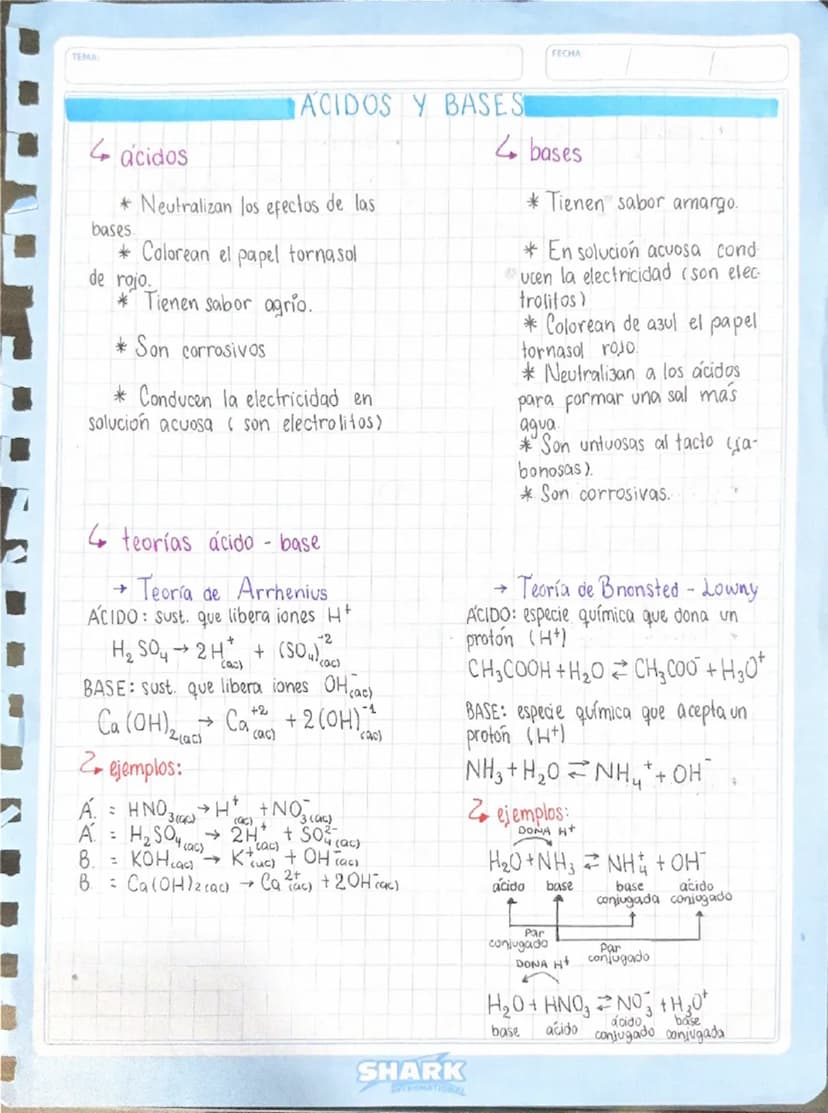 TEMA:
FECHA
ÁCIDOS Y BASES
ácidos
* Neutralizan los efectos de las
bases.
* Colorean el papel tornasol
de rojo.
* Tienen sabor agrío.
* Son corrosivos
* Conducen la electricidad en
solución acuosa ( son electrolitos)
bases
* Tienen sabor amargo.
* En solución acuosa cond-
ucen la electricidad (son elec-
trolitos)
* Colorean de azul el papel
tornasol rojo.
* Neutralizan a los ácidos
para formar una sal más
agua.
* Son untuosas al tacto (ja-
bonosas).
* Son corrosivas.
teorías ácido - base
→ Teoría de Arrhenius
ÁCIDO: sust. que libera iones H⁺
H₂SO₄ → 2H⁺(ac) + (SO₄)⁻²(ac)
BASE: sust. que libera iones OH⁻(ac)
Ca(OH)₂(ac) → Ca⁺²(ac) + 2(OH)⁻¹(ac)
ejemplos:
Á. = HNO₃(ac) → H⁺(ac) + NO₃⁻(ac)
Á. = H₂SO₄(ac) → 2H⁺(ac) + SO₄²⁻(ac)
B. = KOH(ac) → K⁺(ac) + OH⁻(ac)
B. = Ca(OH)₂(ac) → Ca²⁺(ac) + 2OH⁻(ac)
→ Teoría de Bnonsted - Lowny
ÁCIDO: especie química que dona un
protón (H⁺)
CH₃COOH + H₂O ⇄ CH₃COO⁻ + H₃O⁺
BASE: especie química que acepta un
protón (H⁺)
NH₃ + H₂O ⇄ NH₄⁺ + OH⁻
ejemplos:
DONA H⁺
H₂O + NH₃ ⇄ NH₄⁺ + OH⁻
ácido base base ácido
conjugada conjugado
Par
conjugado
Par
conjugado
DONA H⁺
H₂O + HNO₃ ⇄ NO₃⁻ + H₃O⁺
base ácido ácido base
conjugado conjugada
SHARK
INTERNATIONAL